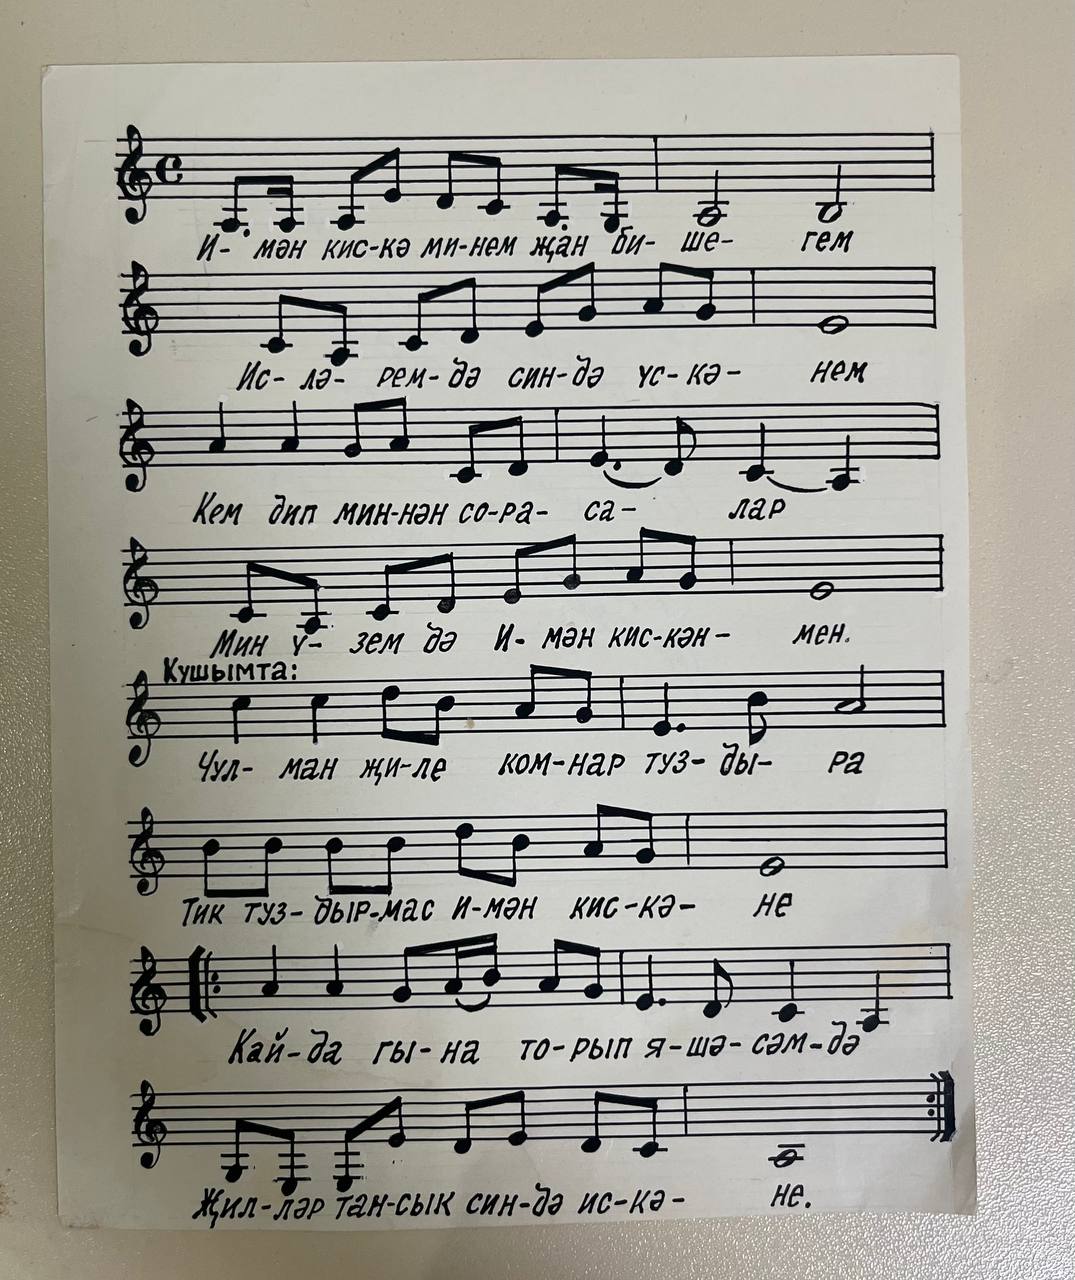 И- мән кис-кә ми-нем җан би- ше- гем
Ис- лә- рем-дә син-дә үс-кә- нем
Кем дип мин-нән со-ра- са- лар
Мин ү- зем дә И- мән кис-кән- мен.
Кушымта:
Чул- ман җи-ле ком-нар туз- ды- ра
Тик туз- дыр-мас и-мән кис-кә- не
Кай-да гы-на то-рып я-шә-сәм-дә
Җил-ләр тан-сык син-дә ис-кә- не.